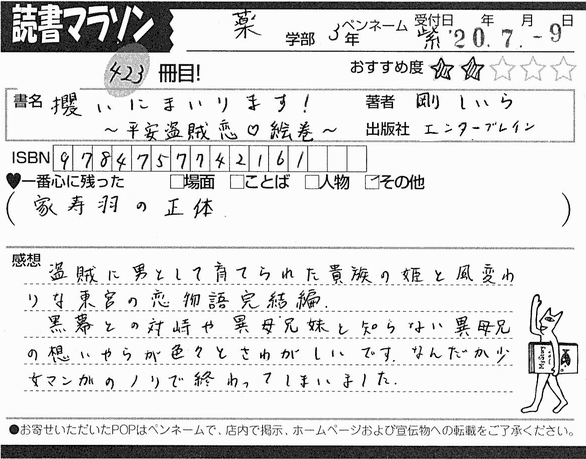 読書マラソン
薬 学部 3年 ペンネーム 紫 受付日 年 月 日 '20.7.-9
423 冊目! おすすめ度 ★★☆☆☆
書名 攫いにまいります! 著者 剛しいら
~平安盗賊恋♡絵巻~ 出版社 エンターブレイン
ISBN 9784757742161
♥一番心に残った □場面 □ことば □人物 ☑その他
(家寿羽の正体.)
感想
盗賊に男として育てられた貴族の姫と風変わ
りな東宮の恋物語完結編.
黒幕との対峙や異母兄妹と知らない異母兄
の想いやらが色々とさわがしいです.なんだか少
女マンガのノリで終わってしまいました.
●お寄せいただいたPOPはペンネームで、店内で掲示、ホームページおよび宣伝物への転載をご了承ください。